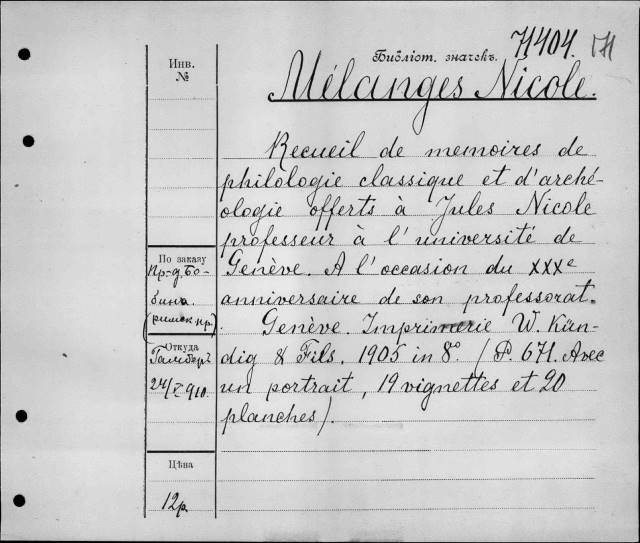 71404. 171
Библіот. значекъ.
Mélanges Nicole.
Инв.
№
Recueil de memoires de
philologie classique et d'arché-
ologie offerts à Jules Nicole
professeur à l'université de
Genève. A l'occasion du XXXe
anniversaire de son professorat.
Genève. Imprimerie W. Kün-
dig & Fils. 1905 in 8º. (P. 671. Avec
un portrait, 19 vignettes et 20
planches).
По заказу
Пр-д. Бо-
бина.
(римск пр.)
Откуда
Гамберъ
24/V 910.
Цѣна
12р.